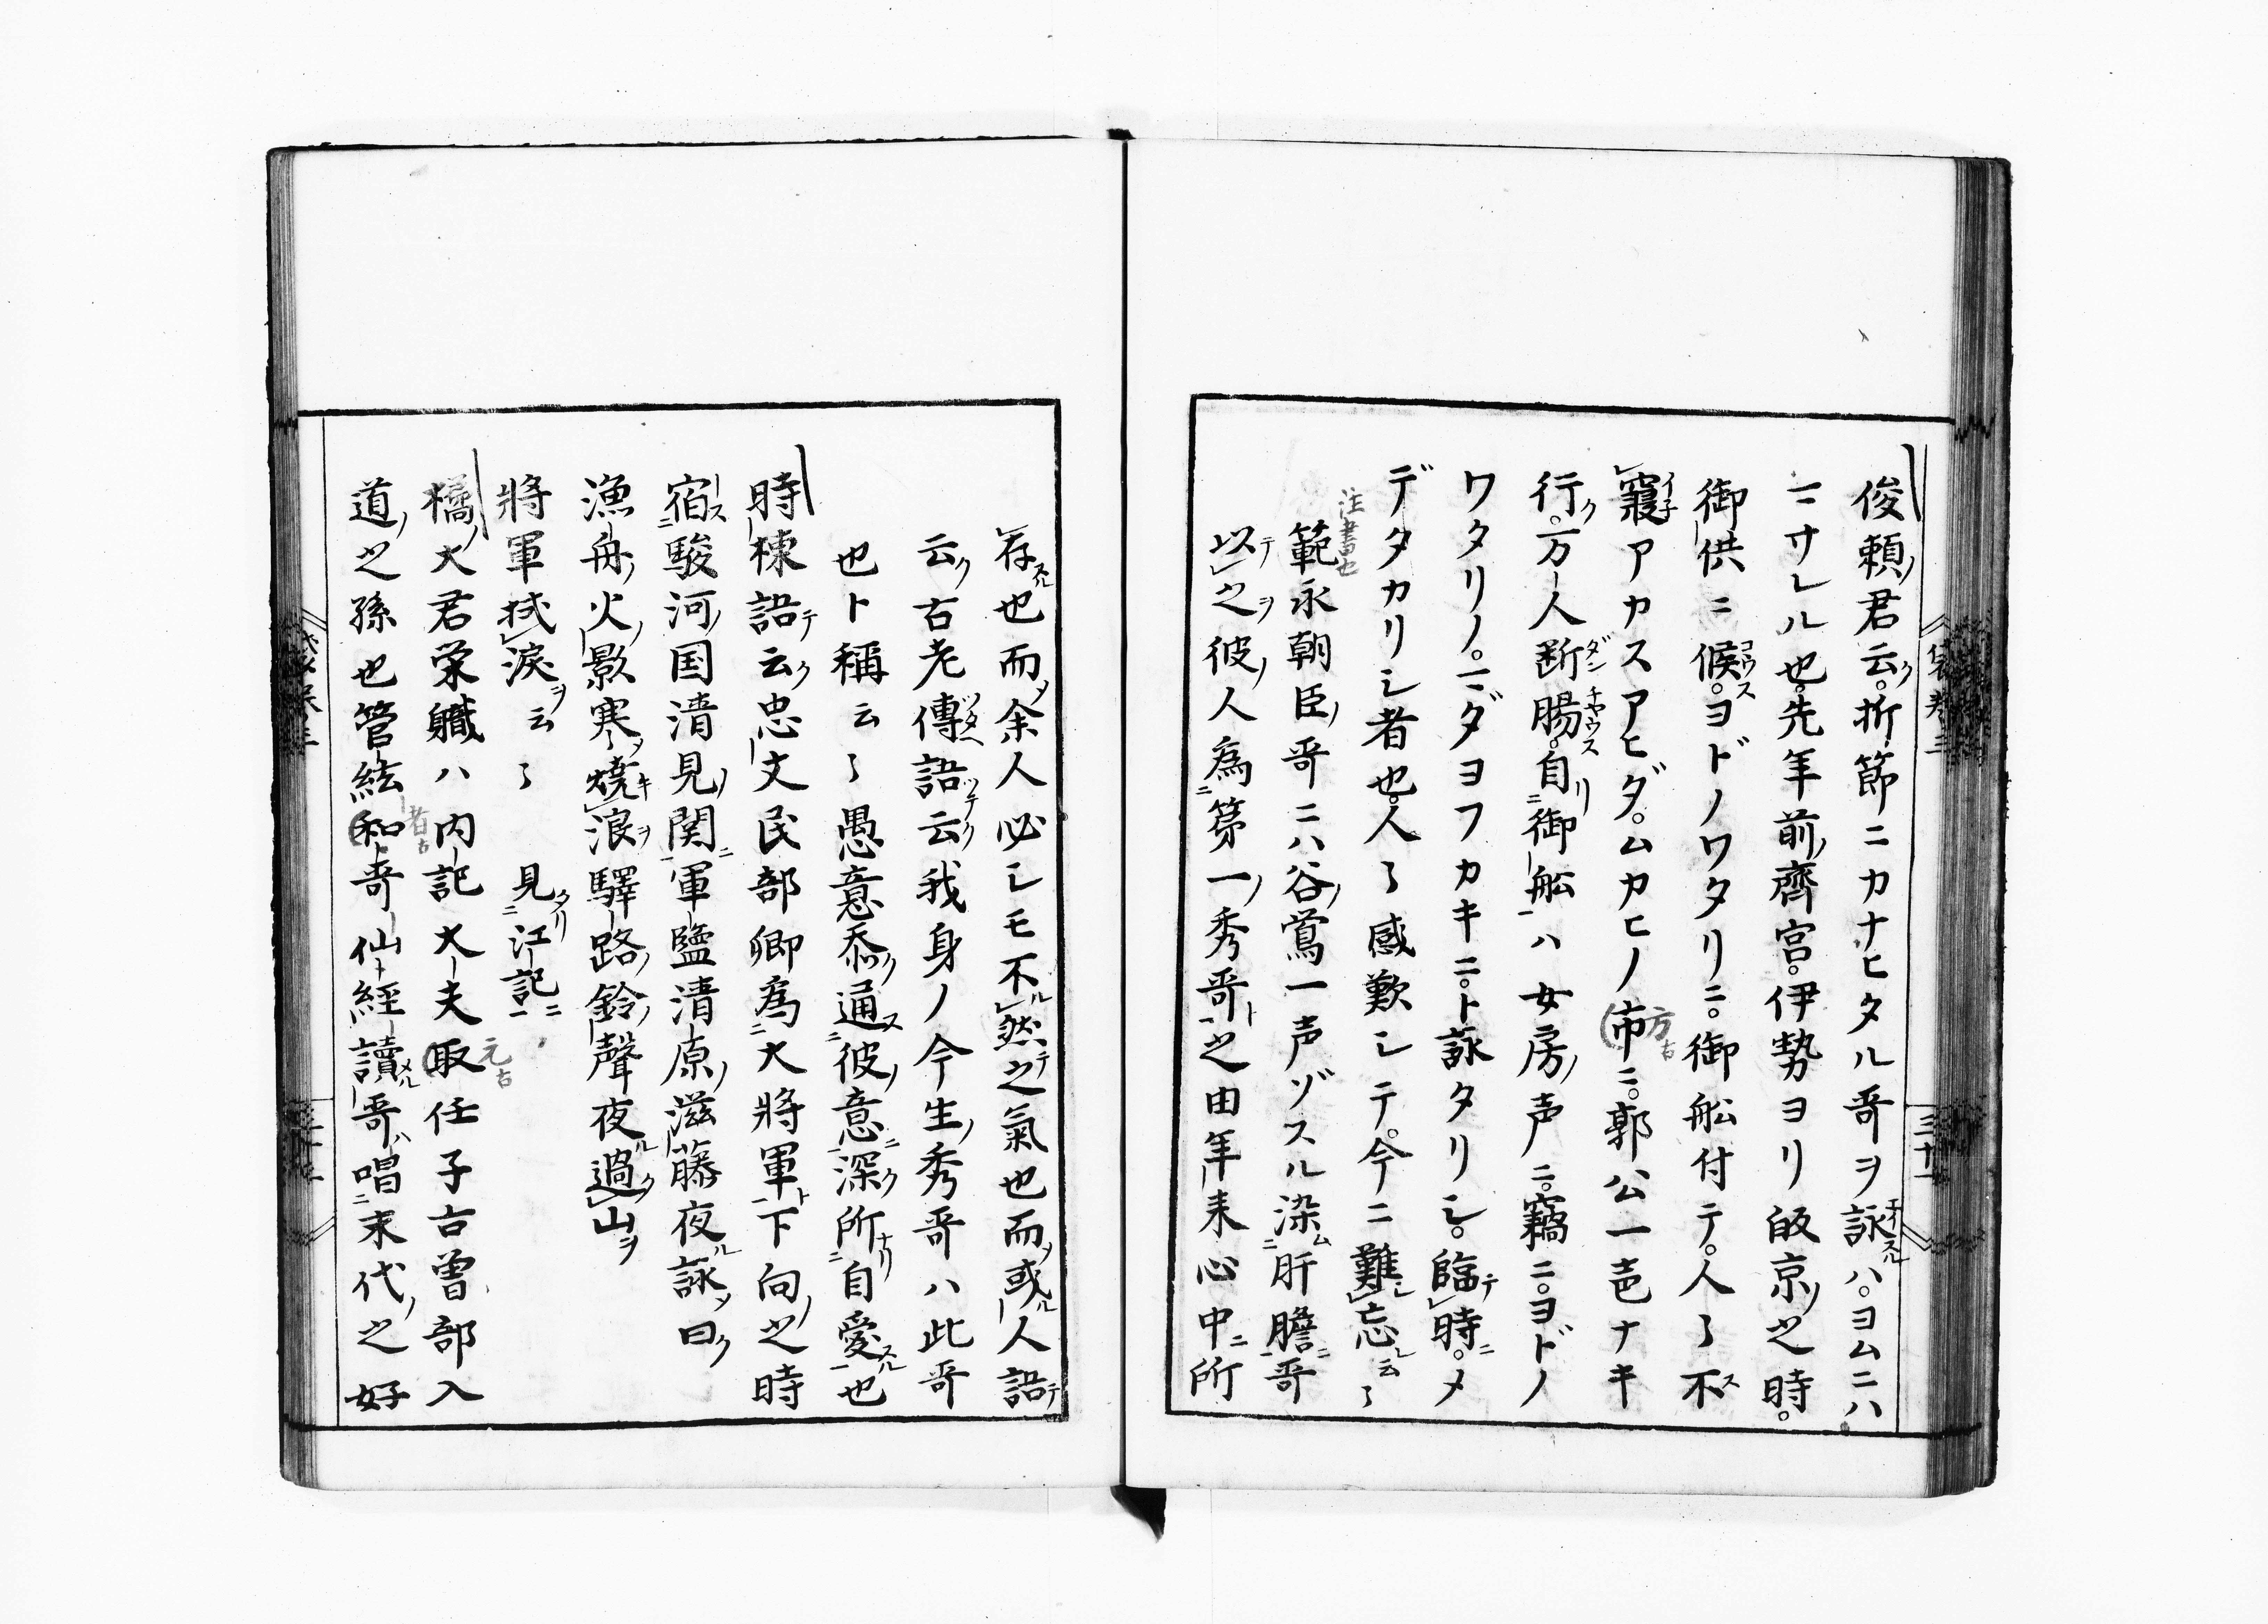 俊頼君云折節ニカナヒタル哥ヲ詠ハ。ヨムニハ
マサレル也。先年前齊宮。伊勢ヨリ皈京之時。
御供ニ候。ヨドノワタリニ。御舩付テ。人〻不
寝アカスアヒダ。ムカヒノ市ニ。郭公一声ナキ
行。万人断腸。自御舩ハ女房声ニ。竊ニ。ヨドノ
ワタリノ。マダヨフカキニ。ト詠タリシ。臨時。メ
デタカリシ者也。人〻感歎シテ。今ニ難忘云〻
注書也
範永朝臣哥ニハ谷鶯一声ゾスル染肝膽哥
以之彼人為第一秀哥之由年来心中所
存也而余人必シモ不然之氣也而或人語
云古老傳語云我身ノ今生秀哥ハ此哥
也ト稱云〻愚意忝通彼意深所自愛也
時棟語云忠文民部卿為大將軍下向之時
宿駿河国清見関軍監清原滋藤夜詠曰
漁舟火影寒燒浪驛路鈴聲夜過山
將軍拭淚云〻 見江記
橘大君栄職ハ内記大夫取任子古曽部入
道之孫也管絃和哥仙經讀哥唱末代之好
方古
元古
者古
袋巻三
三十一